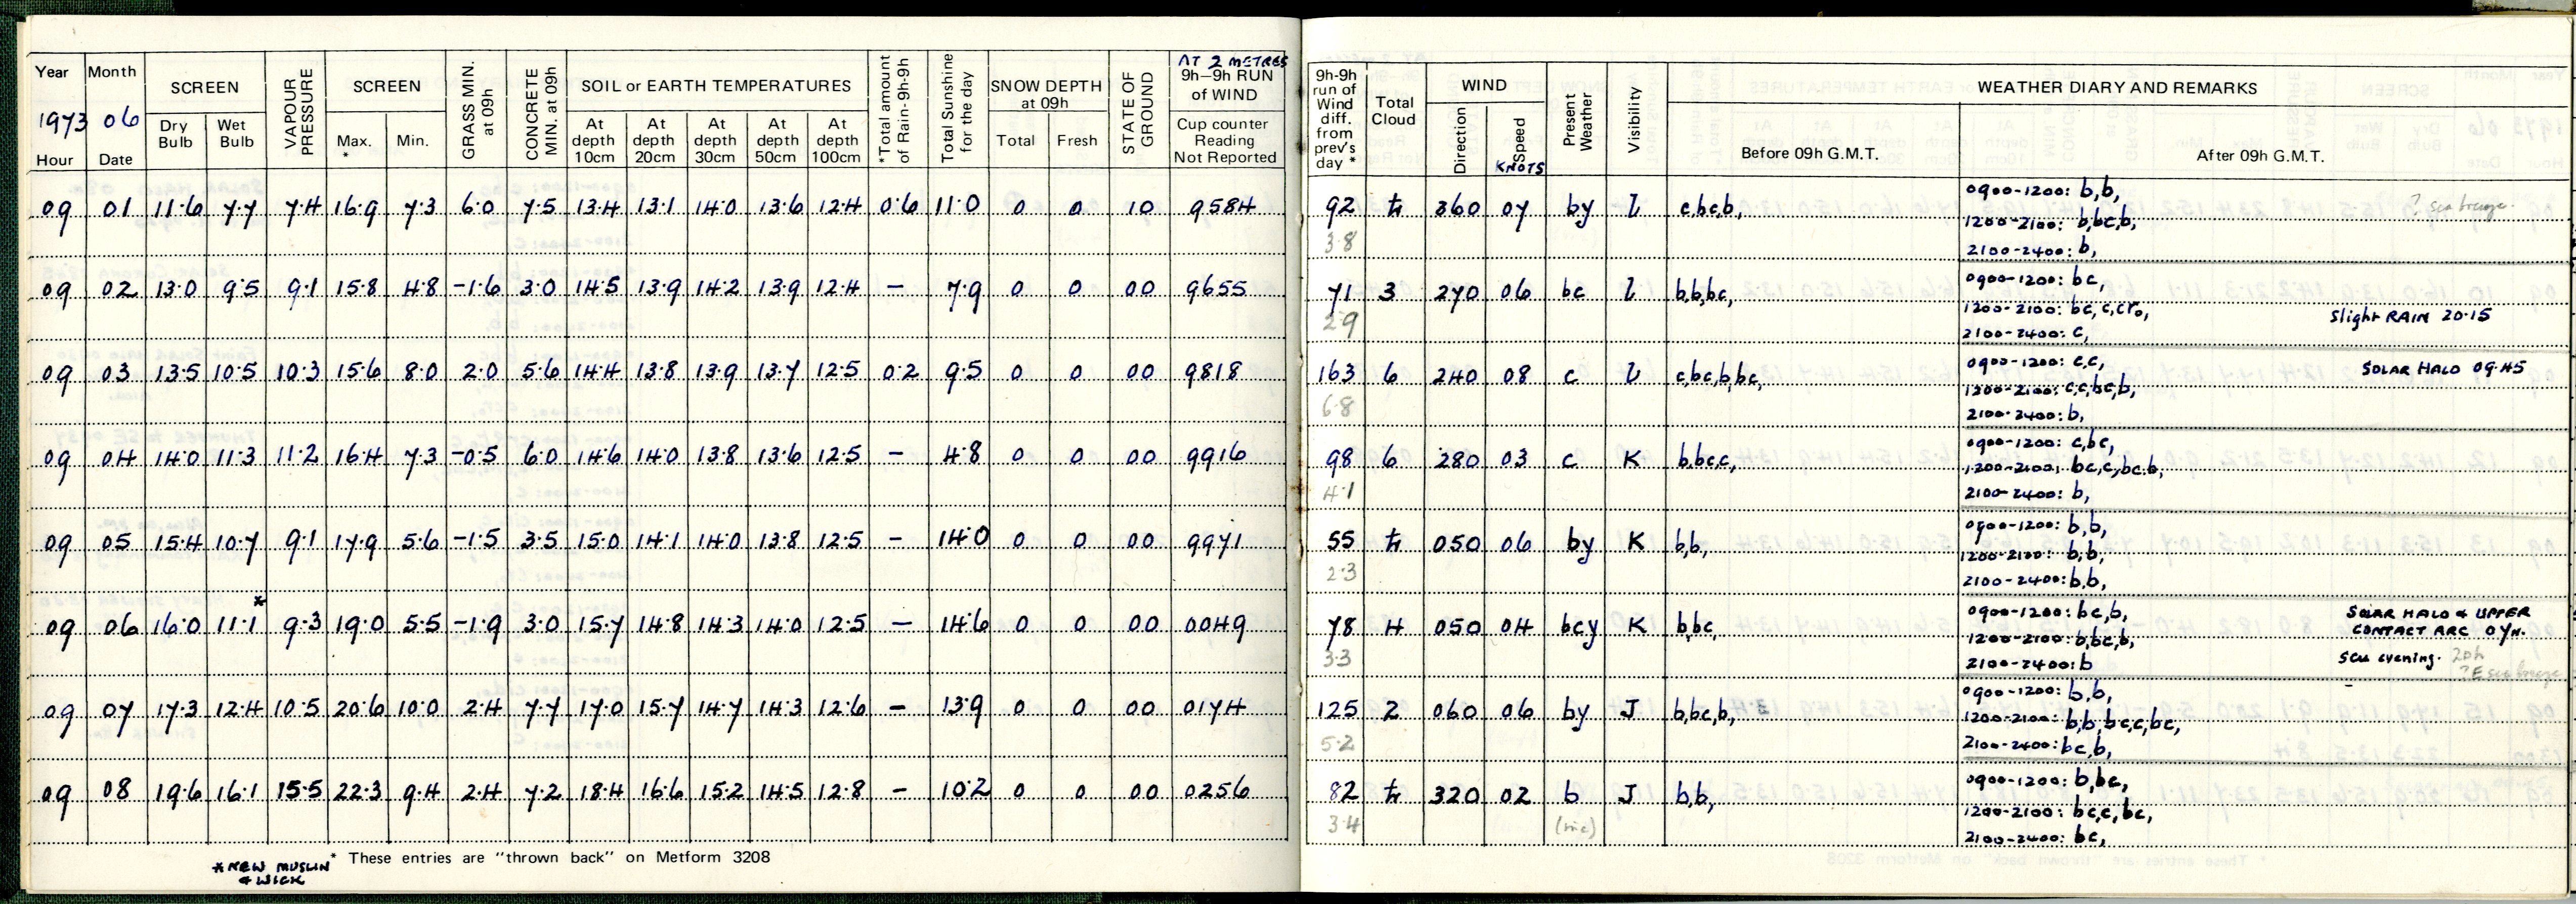 Year Month SCREEN VAPOUR PRESSURE SCREEN GRASS MIN. at 09h CONCRETE MIN. at 09h SOIL or EARTH TEMPERATURES *Total amount of Rain-9h-9h Total Sunshine for the day SNOW DEPTH at 09h STATE OF GROUND AT 2 METRES 9h–9h RUN of WIND
1973 06 Dry Bulb Wet Bulb Max. * Min. At depth 10cm At depth 20cm At depth 30cm At depth 50cm At depth 100cm Total Fresh Cup counter Reading Not Reported
Hour Date
09 01 11.6 7.7 7.4 16.9 7.3 6.0 7.5 13.4 13.1 14.0 13.6 12.4 0.6 11.0 0 0 10 9584
09 02 13.0 9.5 9.1 15.8 4.8 -1.6 3.0 14.5 13.9 14.2 13.9 12.4 – 7.9 0 0 00 9655
09 03 13.5 10.5 10.3 15.6 8.0 2.0 5.6 14.4 13.8 13.9 13.7 12.5 0.2 9.5 0 0 00 9818
09 04 14.0 11.3 11.2 16.4 7.3 -0.5 6.0 14.6 14.0 13.8 13.6 12.5 – 4.8 0 0 00 9916
09 05 15.4 10.7 9.1 17.9 5.6 -1.5 3.5 15.0 14.1 14.0 13.8 12.5 – 14.0 0 0 00 9971
09 06 16.0 11.1 * 9.3 19.0 5.5 -1.9 3.0 15.7 14.8 14.3 14.0 12.5 – 14.6 0 0 00 0049
09 07 17.3 12.4 10.5 20.6 10.0 2.4 7.7 17.0 15.7 14.7 14.3 12.6 – 13.9 0 0 00 0174
09 08 19.6 16.1 15.5 22.3 9.4 2.4 7.2 18.4 16.6 15.2 14.5 12.8 – 10.2 0 0 00 0256
* These entries are "thrown back" on Metform 3208
* NEW MUSLIN
& WICK
9h-9h run of Wind diff. from prev's day * Total Cloud WIND Present Weather Visibility WEATHER DIARY AND REMARKS
Direction Speed KNOTS Before 09h G.M.T. After 09h G.M.T.
92 360 07 by c,bc,b, 0900-1200: b,b, ? sea breeze.
3.8 1200-2100: b,bc,b,
2100-2400: b,
71 3 270 06 bc b,b,bc, 0900-1200: bc,
2.9 1200-2100: bc, c, cr₀, Slight RAIN 20.15
2100-2400: c,
163 6 240 08 c c,bc,b,bc, 0900-1200: c,c, SOLAR HALO 09.45
6.8 1200-2100: c,c,bc,b,
2100-2400: b,
98 6 280 03 c K b,bc,c, 0900-1200: c,bc,
4.1 1200-2100: bc,c,bc,b,
2100-2400: b,
55 050 06 by K b,b, 0900-1200: b,b,
2.3 1200-2100: b,b,
2100-2400: b,b,
78 4 050 04 bcy K b,bc, 0900-1200: bc,b, SOLAR HALO & UPPER
CONTACT ARC 07H.
3.3 1200-2100: b,bc,b,
2100-2400: b evening. 20h
? E sea breeze
125 2 060 06 by J b,bc,b, 0900-1200: b,b,
5.2 1200-2100: b,b,bc,c,bc,
2100-2400: bc,b,
82 320 02 b J b,b, 0900-1200: b,bc,
3.4 1200-2100: bc,c,bc,
2100-2400: bc,